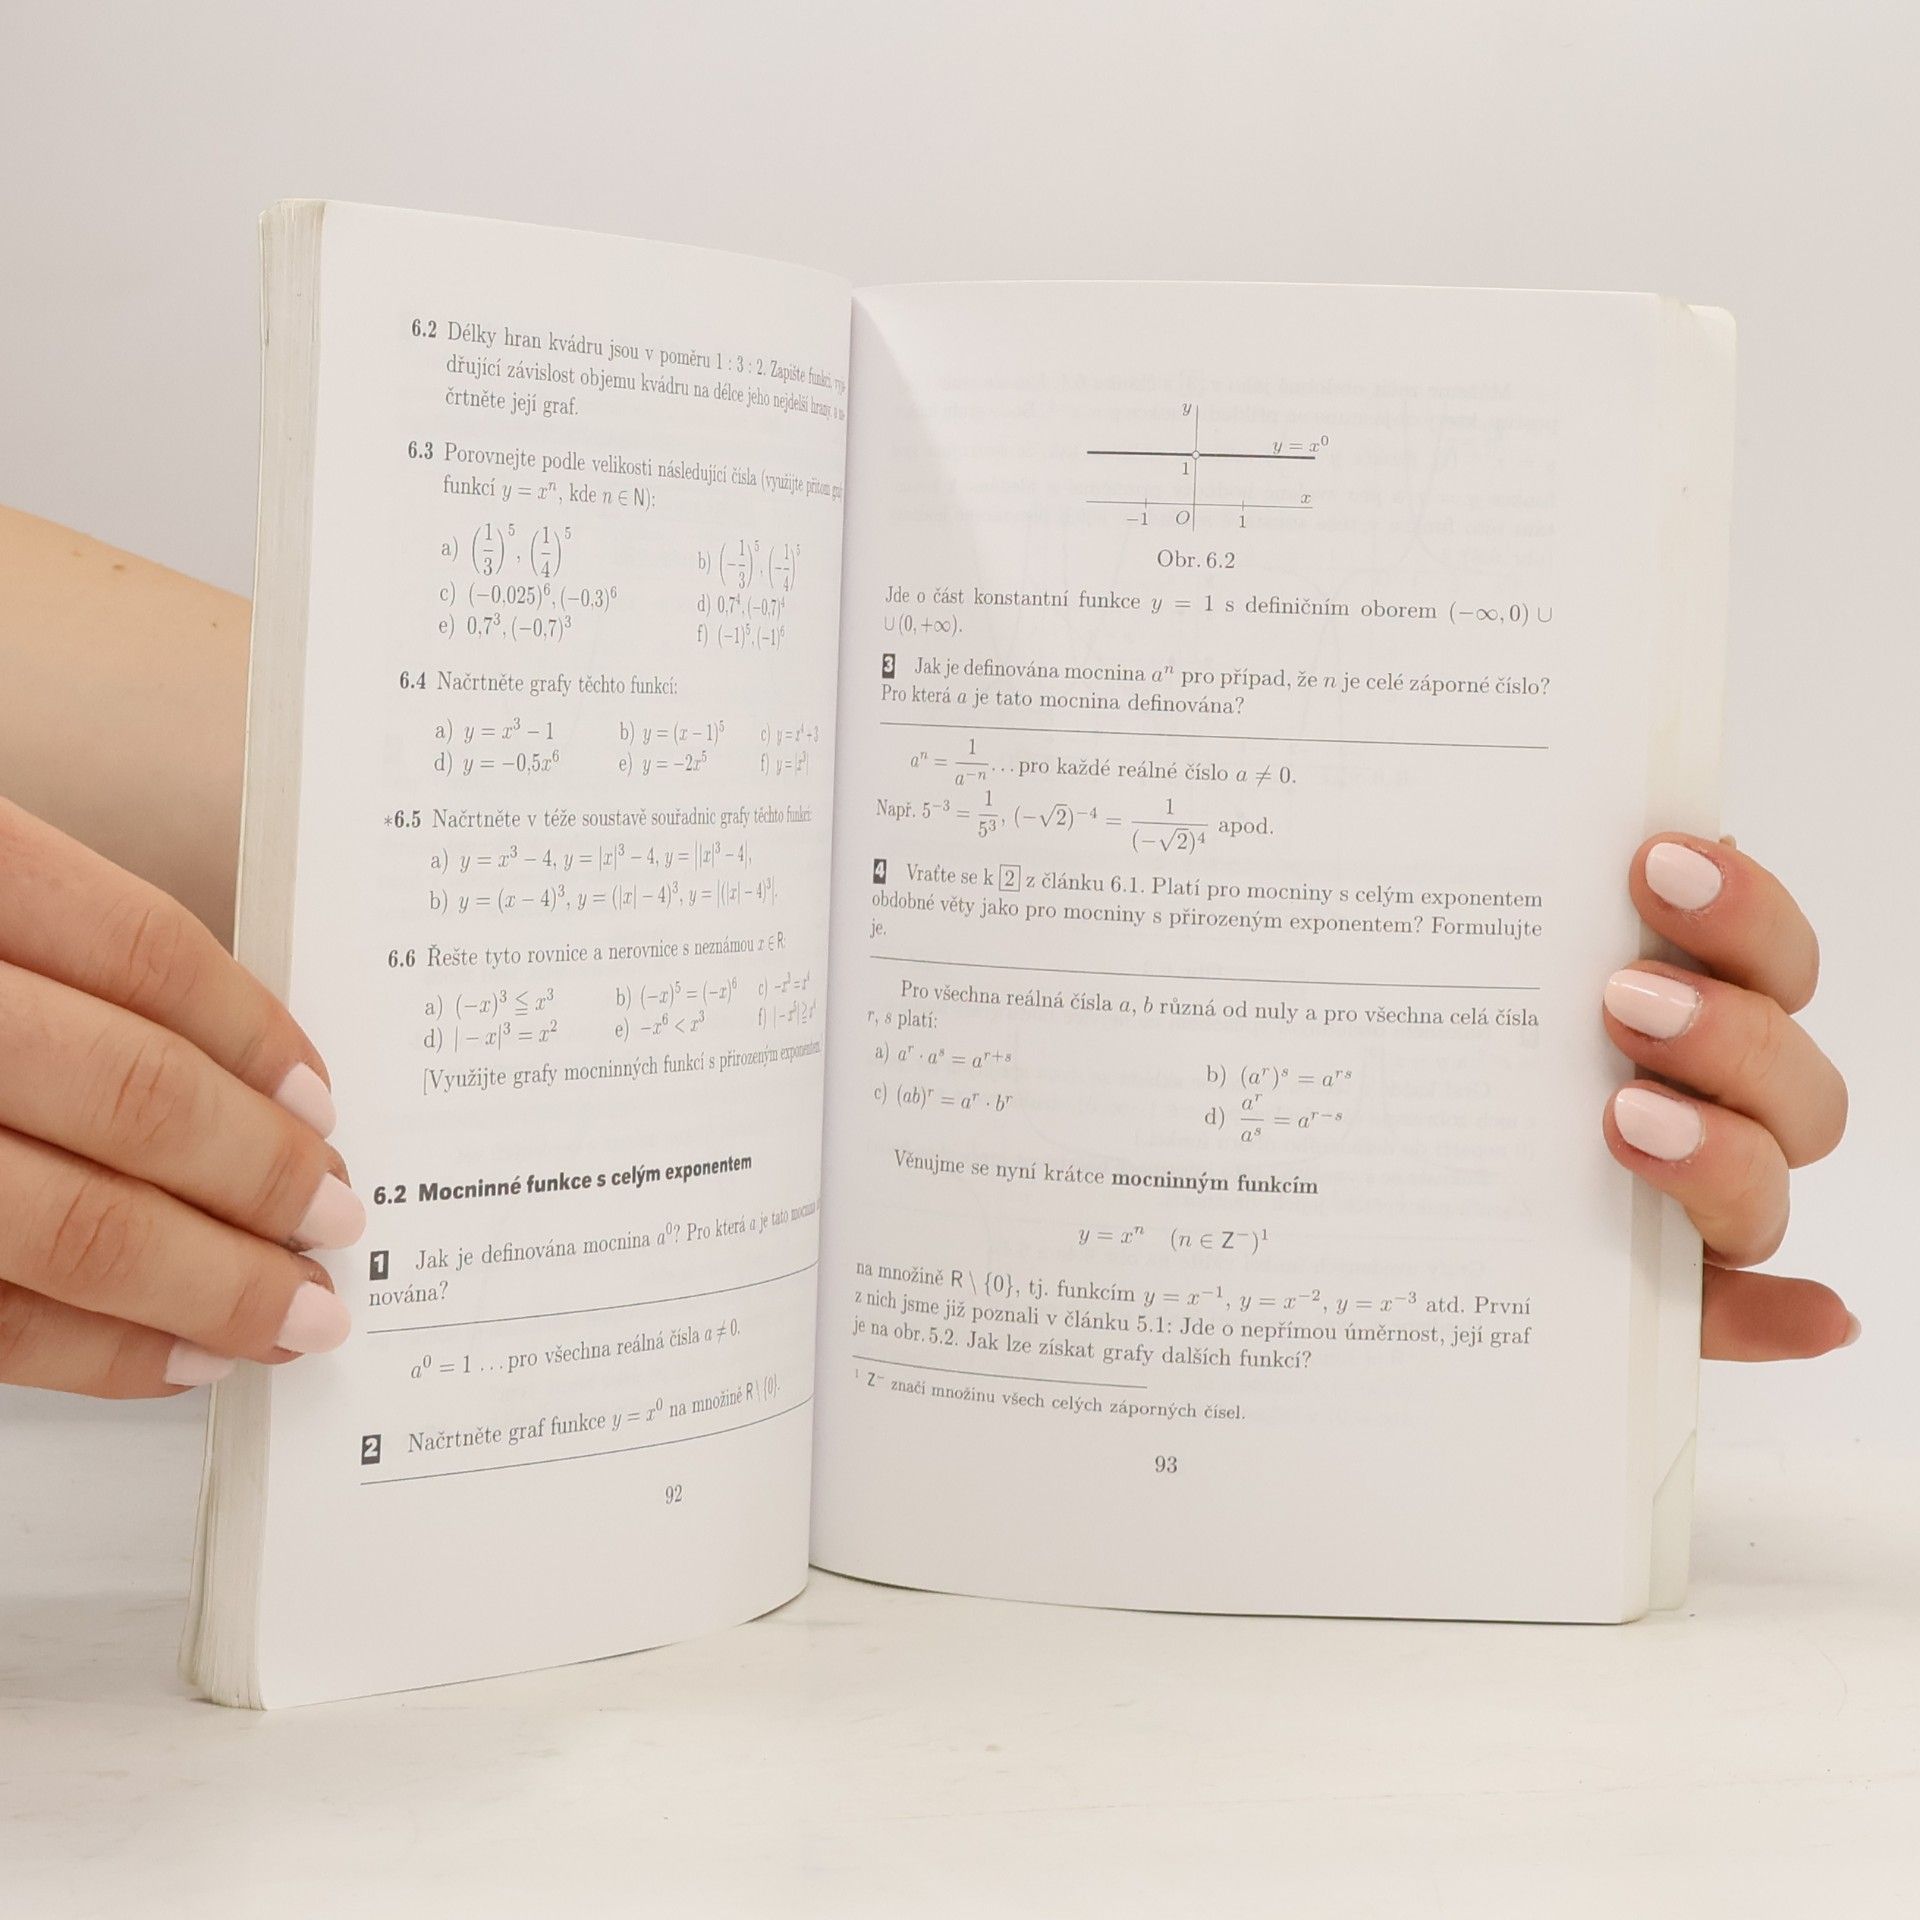 6.2 Délky hran kvádru jsou v poměru 1 : 3 : 2. Zapište funkci, vyja-
dřující závislost objemu kvádru na délce jeho nejdelší hrany, a na-
črtněte její graf.
6.3 Porovnejte podle velikosti následující čísla (využijte přitom
funkcí y = xⁿ, kde n ∈ N):
a) (1/3)⁵, (1/4)⁵ b) (−1/3)⁵, (−1/4)⁵
c) (−0,025)⁶, (−0,3)⁶ d) 0,7⁴, (−0,7)⁴
e) 0,7³, (−0,7)³ f) (−1)⁵, (−1)⁶
6.4 Načrtněte grafy těchto funkcí:
a) y = x³ − 1 b) y = (x − 1)⁵ c) y = x⁴ + 3
d) y = −0,5x⁶ e) y = −2x⁵ f) y = |x³|
*6.5 Načrtněte v téže soustavě souřadnic grafy těchto funkcí:
a) y = x³ − 4, y = |x|³ − 4, y = ||x|³ − 4|,
b) y = (x − 4)³, y = (|x| − 4)³, y = |(|x| − 4)³|.
6.6 Řešte tyto rovnice a nerovnice s neznámou x ∈ R:
a) (−x)³ ≦ x³ b) (−x)⁵ = (−x)⁶ c) −x³ = x⁴
d) | − x|³ = x² e) −x⁶ < x³ f)
[Využijte grafy mocninných funkcí s přirozeným exponentem.]
6.2 Mocninné funkce s celým exponentem
1 Jak je definována mocnina a⁰? Pro která a je tato mocnina
nována?
a⁰ = 1 ... pro všechna reálná čísla a ≠ 0.
2 Načrtněte graf funkce y = x⁰ na množině R \ {0}.
92
y
y = x⁰
1
x
−1 O 1
Obr. 6.2
Jde o část konstantní funkce y = 1 s definičním oborem (−∞, 0) ∪
∪ (0, +∞).
3 Jak je definována mocnina aⁿ pro případ, že n je celé záporné číslo?
Pro která a je tato mocnina definována?
aⁿ = 1/a⁻ⁿ ... pro každé reálné číslo a ≠ 0.
Např. 5⁻³ = 1/5³, (−√2)⁻⁴ = 1/(−√2)⁴ apod.
4 Vraťte se k 2 z článku 6.1. Platí pro mocniny s celým exponentem
obdobné věty jako pro mocniny s přirozeným exponentem? Formulujte
je.
Pro všechna reálná čísla a, b různá od nuly a pro všechna celá čísla
r, s platí:
a) aʳ · aˢ = aʳ⁺ˢ b) (aʳ)ˢ = aʳˢ
c) (ab)ʳ = aʳ · bʳ d) aʳ/aˢ = aʳ⁻ˢ
Věnujme se nyní krátce mocninným funkcím
y = xⁿ (n ∈ Z⁻)¹
na množině R \ {0}, tj. funkcím y = x⁻¹, y = x⁻², y = x⁻³ atd. První
z nich jsme již poznali v článku 5.1: Jde o nepřímou úměrnost, její graf
je na obr. 5.2. Jak lze získat grafy dalších funkcí?
¹ Z⁻ značí množinu všech celých záporných čísel.
93